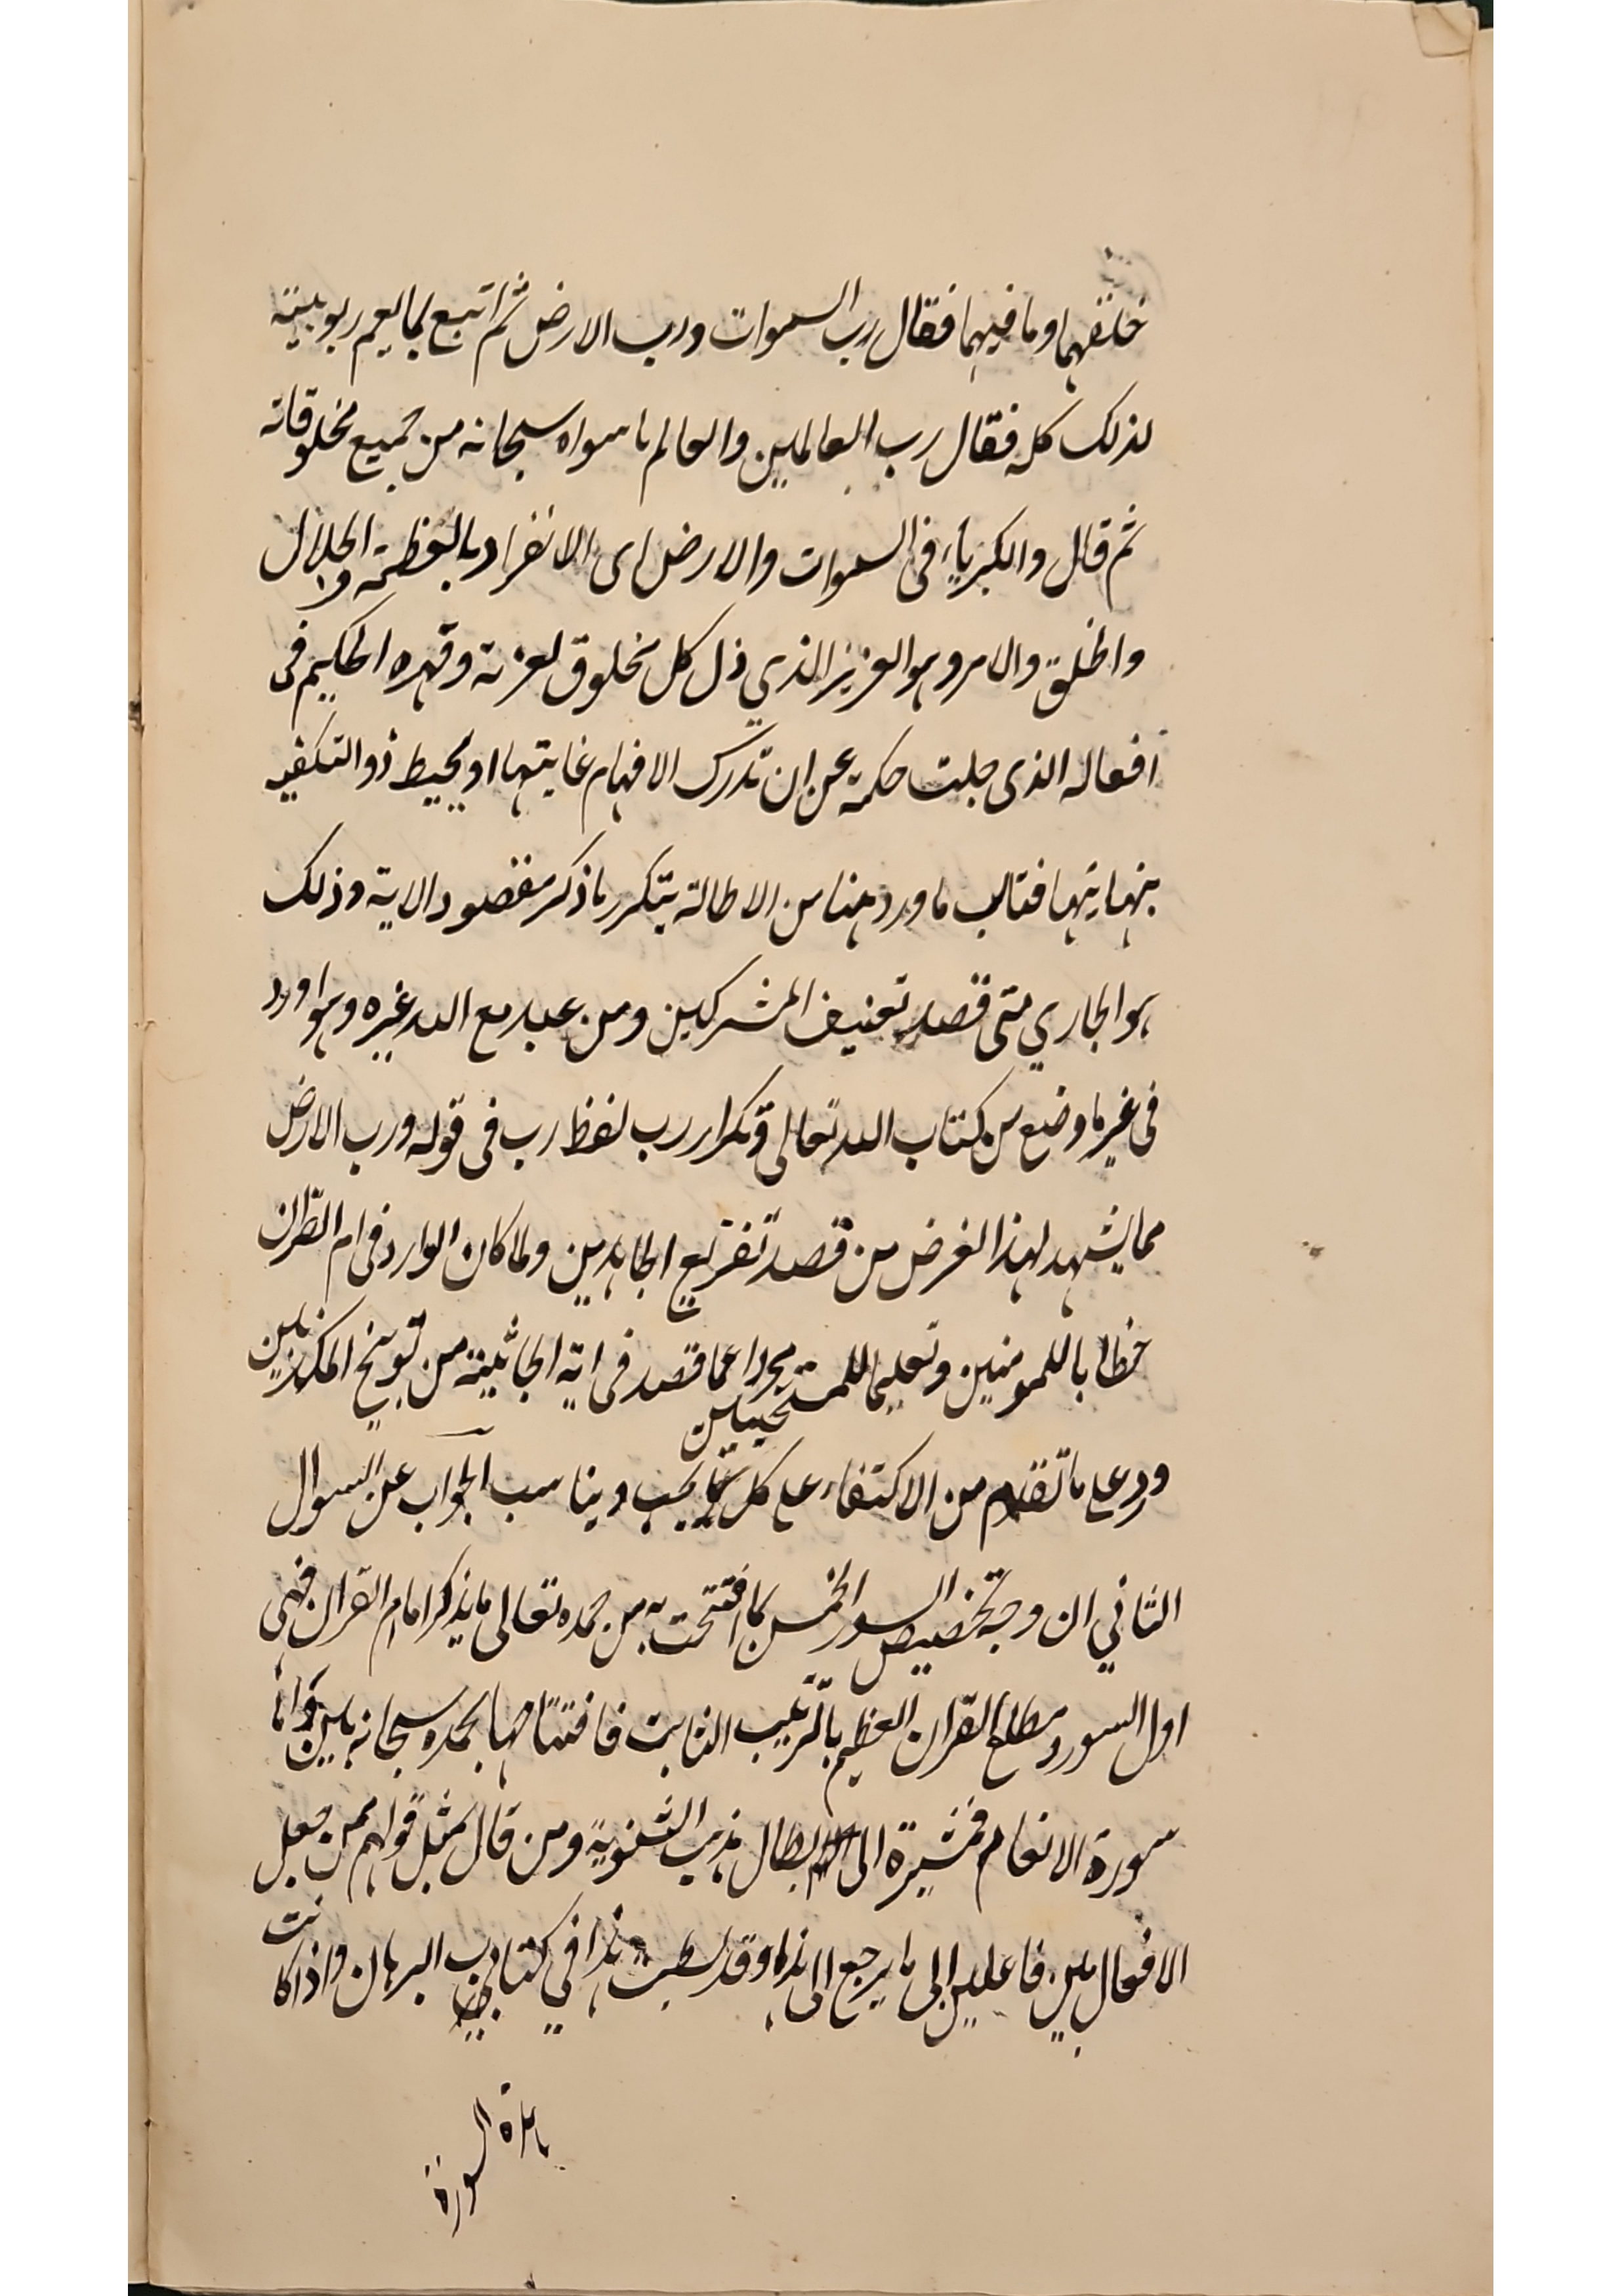 خلقهما وما فيهما فقال رب السموات ورب الارض ثم اتبع بما يعم ربوبيته
لذلك كله فقال رب العالمين والعالم ما سواه سبحانه من جميع مخلوقاته
ثم قال والكبرياء في السموات والارض اى الانفراد بالعظمة والجلال
والخلق والامر وهو العزيز الذي ذل كل مخلوق لعزته وقهره الحكيم في
افعاله الذى جلت حكمته عن ان تدرك الافهام غايتها او يحيط ذو التكفير
بنهايتها فتالب ما ورد هنا من الاطالة بتكرر ما ذكر مقصود الاية وذلك
هو الجاري متى قصد تعنيف المشركين ومن عبد مع الله غيره وهو اورد
في غير ما وضع من كتاب الله تعالى وتكرار رب لفظ رب في قوله ورب الارض
مما يشهد لهذا الغرض من قصد تقريع الجاهدين ولما كان الوارد في ام القران
خطابا للمومنين وتعليما للمستجيبين مجردا عما قصد في اية الجاثية من توبيخ المكذبين
ورد على ما تقدم من الاكتفاء على كل ما يجب ويناسب الجواب عن السوال
الثاني ان وجه تخصيص السور الخمس بما افتتحت به من حمده تعالى ما يذكر اما ام القران فهي
اول السور ومطلع القران العظيم بالترتيب الثابت فافتتاحها بحمده سبحانه بين واما
سورة الانعام فمشيرة الى ابطال مذهب الثنوية ومن قال بمثل قولهم ممن جعل
الافعال بين فاعلين الى ما يرجع الى هذا وقد بسطت هذا في كتاب البرهان واذا كانت
هذه السورة